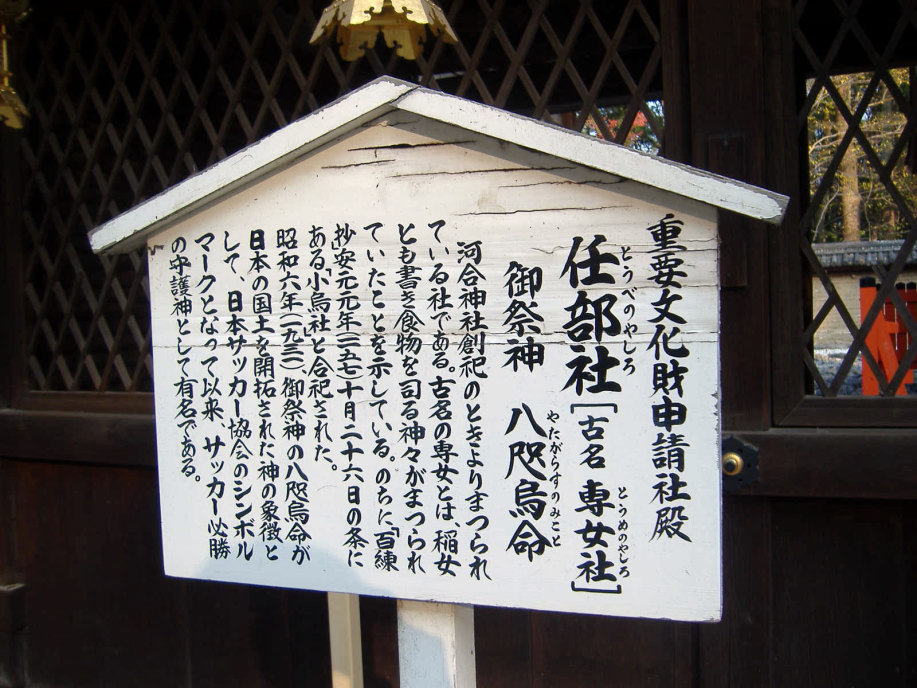 重要文化財申請社殿
とうべのやしろ
任部社［古名 専女社］
とうめのやしろ
やたがらすのみこと
御祭神 八咫烏命
河合神社創祀のときよりまつられ
ている社である。古名の専女とは、稲女
とも書き食物を司る神々がまつられ
ていたことを示している。のちに、「百練
抄」安元元年(一一七五)十月二十六日の条に
ある「小烏社」と合祀された。
昭和六年(一九三一)、御祭神の八咫烏命が
日本の国土を開拓された神の象徴と
して、日本サッカー協会のシンボル
マークとなって以来、サッカー必勝
の守護神として有名である。